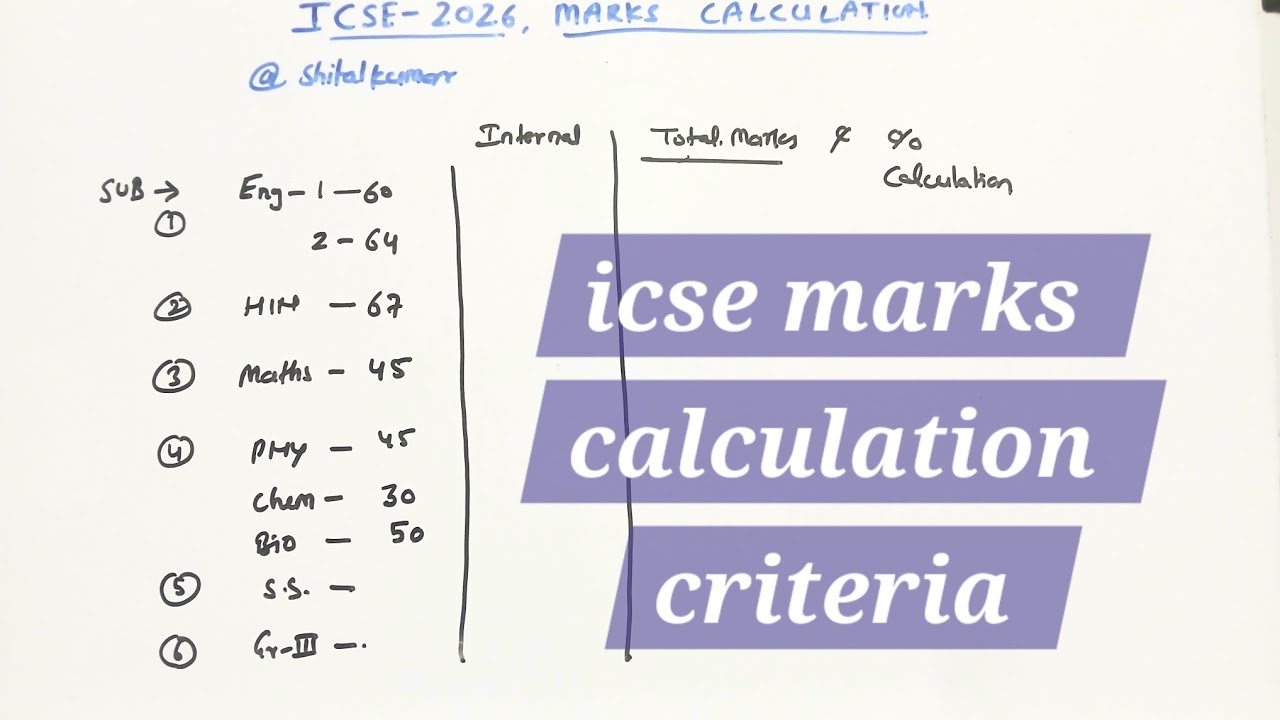 ICSE-2026, MARKS CALCULATION
@ shitalkumarr
Internal Total. Marks & %
Calculation
SUB → Eng-1-60
① 2-64
② HIN - 67
③ Maths - 45
④ PHY - 45
Chem - 30
Bio - 50
⑤ S.S. -
⑥ Gr-III -.
icse marks
calculation
criteria